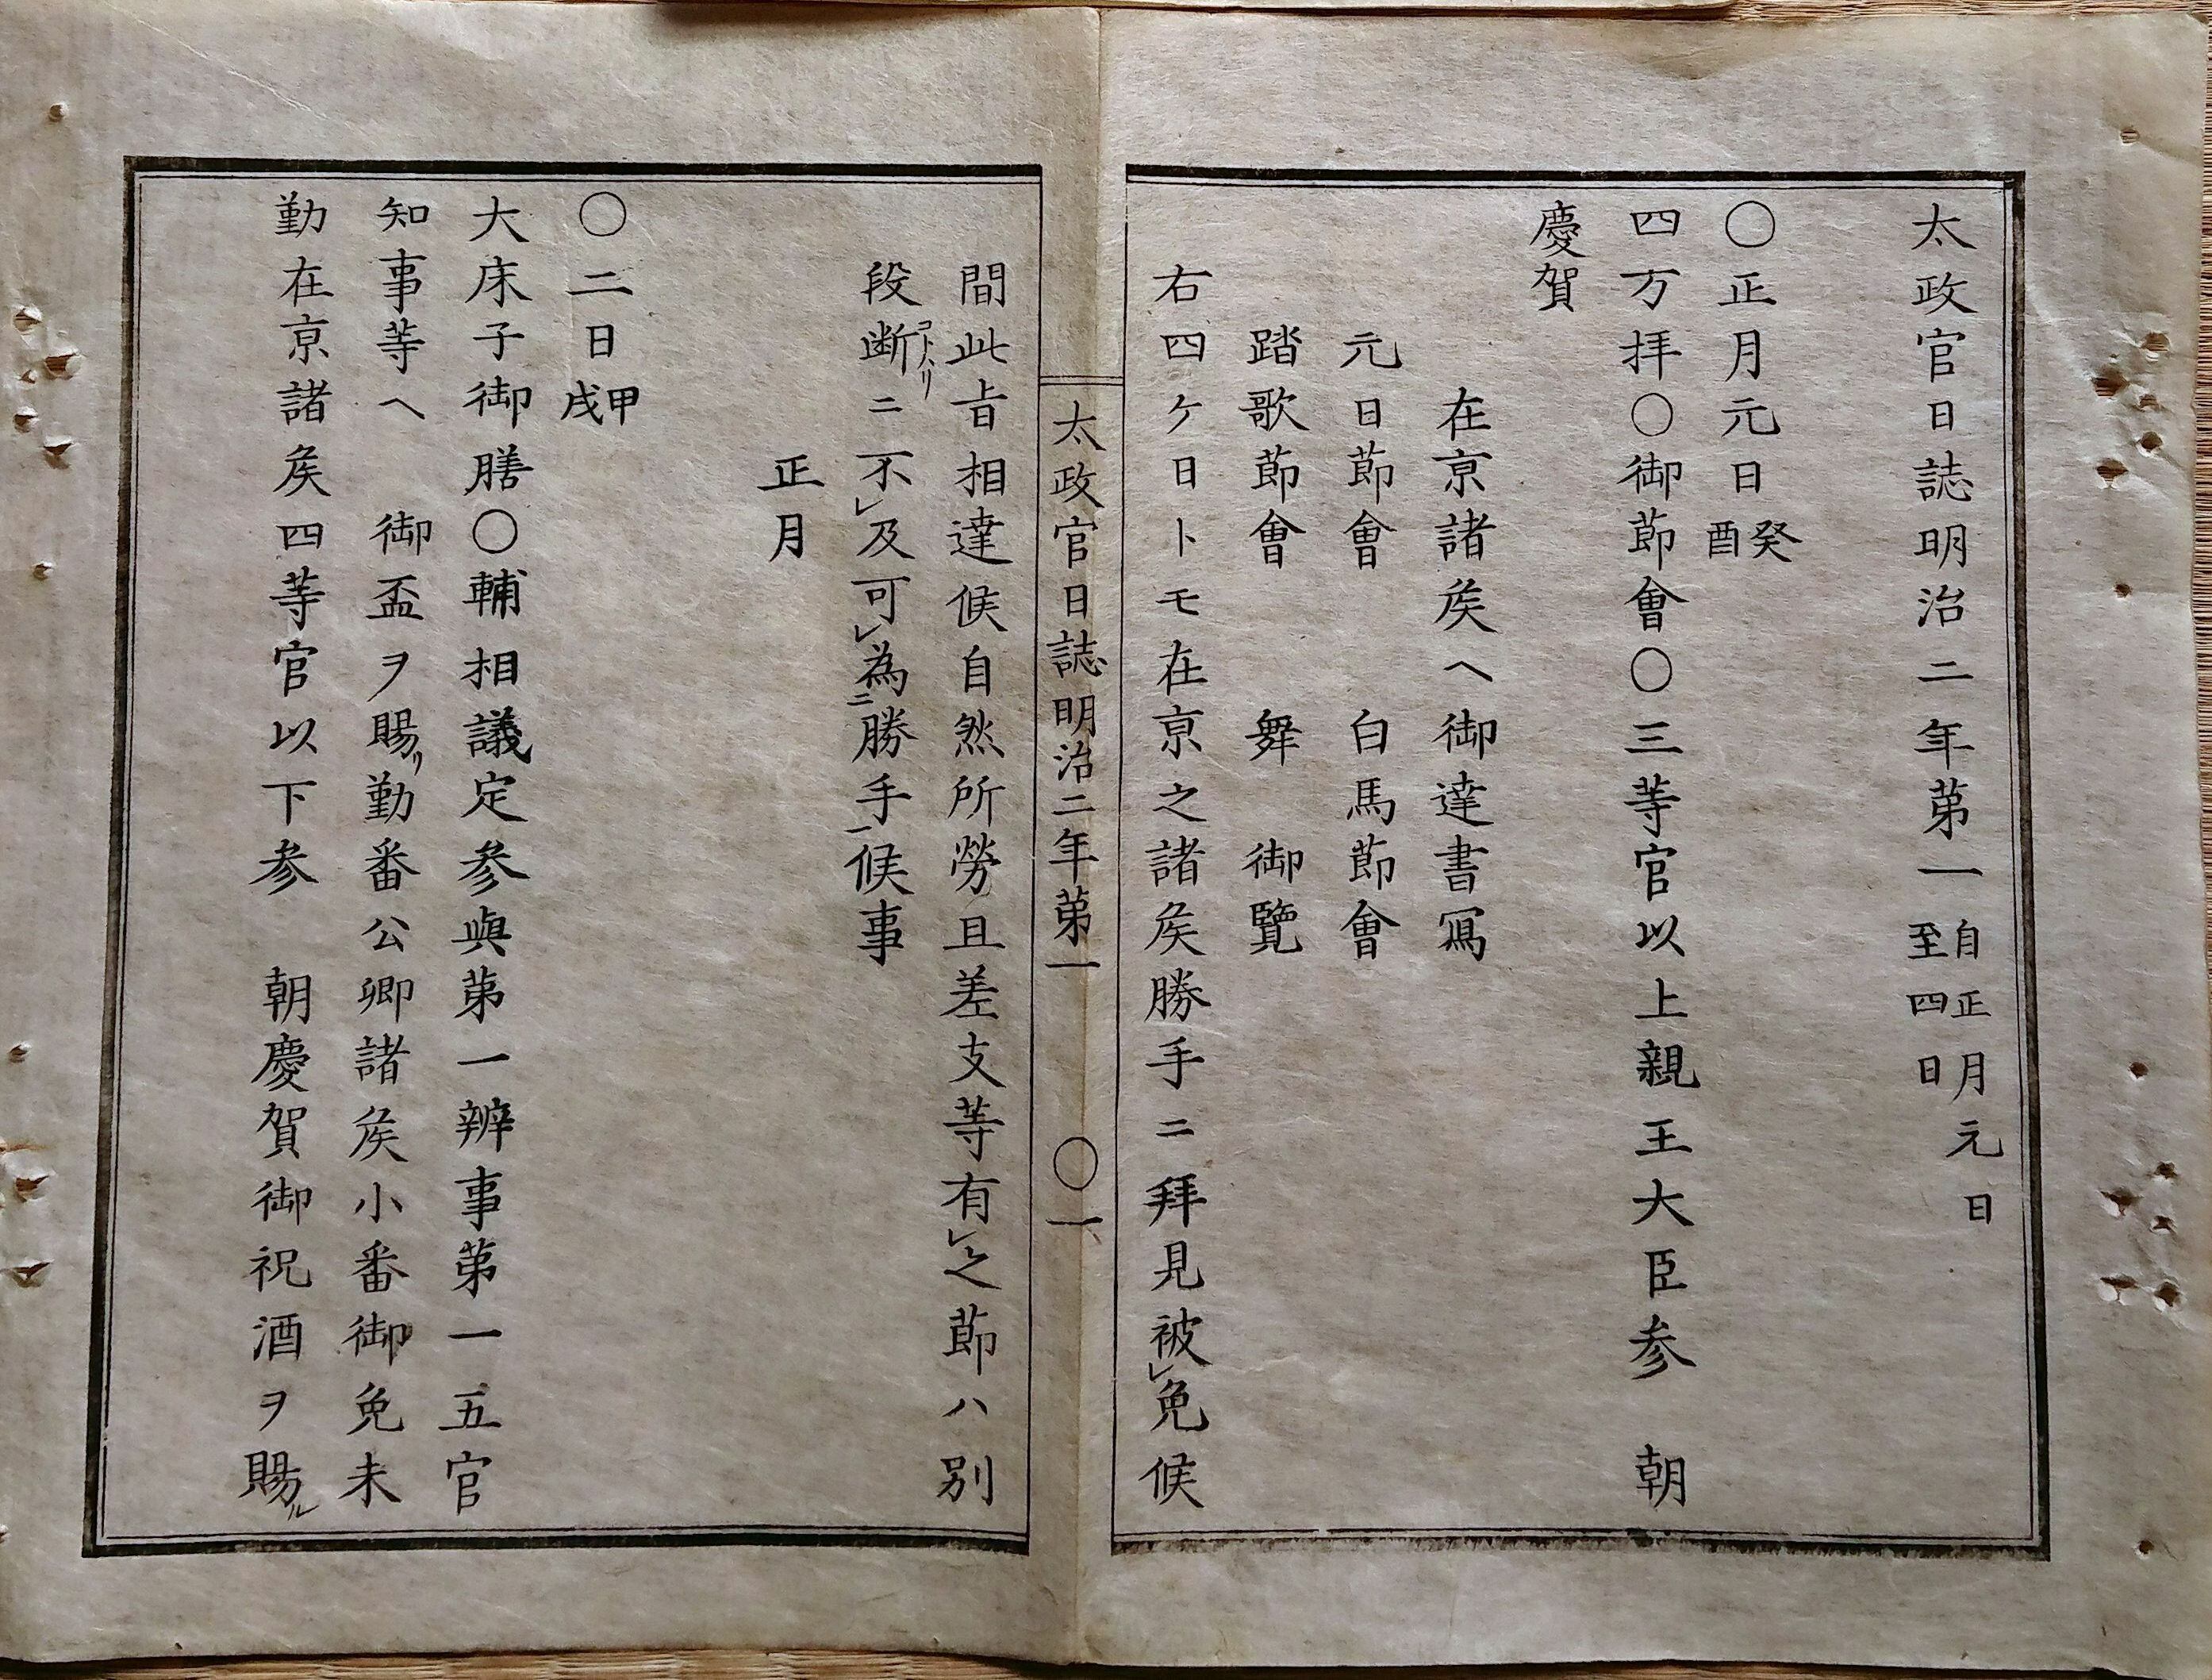 太政官日誌明治二年第一 自正月元日 至四日
〇正月元日 癸酉
四方拝〇御節會〇三等官以上親王大臣参 朝
慶賀
在京諸侯ヘ御達書寫
元日節會 白馬節會
踏歌節會 舞 御覽
右四ケ日トモ在京之諸侯勝手ニ拜見被レ免候
太政官日誌明治二年第一 〇一
間此旨相達候自然所勞且差支等有レ之節ハ別
段断コトハリニ不レ及可レ為ニ勝手一候事
正月
〇二日 甲戌
大床子御膳〇輔相議定参與第一辨事第一五官
知事等ヘ 御盃ヲ賜リ勤番公卿諸侯小番御免未
勤在京諸侯四等官以下参 朝慶賀御祝酒ヲ賜ル